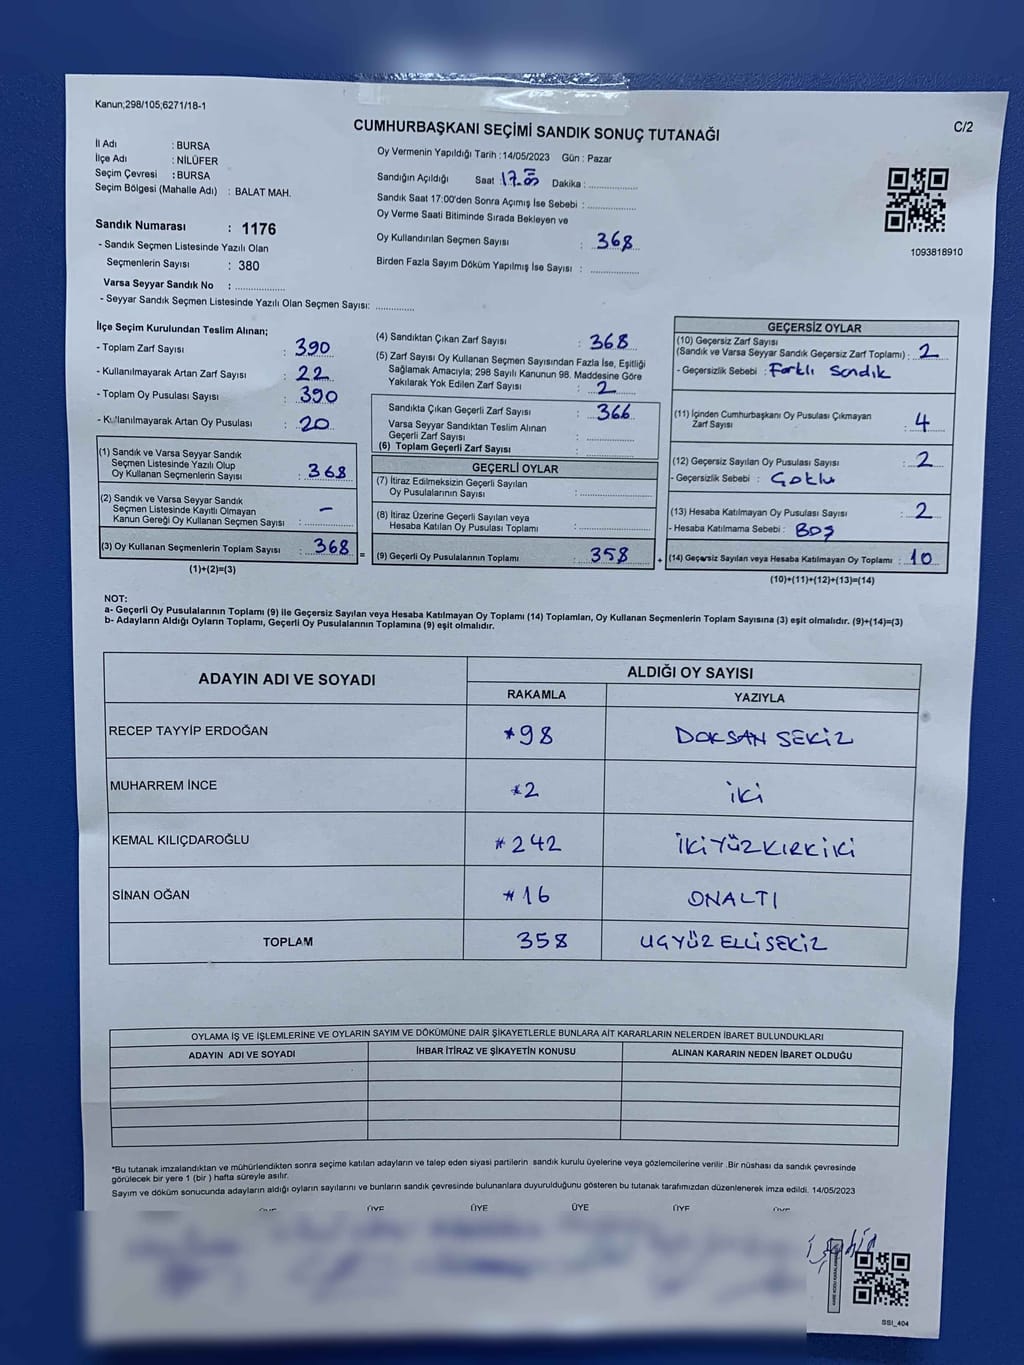 Kanun;298/105,6271/18-1
CUMHURBAŞKANI SEÇİMİ SANDIK SONUÇ TUTANAĞI
C/2
İl Adı : BURSA
İlçe Adı : NİLÜFER
Seçim Çevresi : BURSA
Seçim Bölgesi (Mahalle Adı) : BALAT MAH.
Sandık Numarası : 1176
- Sandık Seçmen Listesinde Yazılı Olan
Seçmenlerin Sayısı : 380
Varsa Seyyar Sandık No : ..............
- Seyyar Sandık Seçmen Listesinde Yazılı Olan Seçmen Sayısı: ............
Oy Vermenin Yapıldığı Tarih : 14/05/2023 Gün : Pazar
Sandığın Açıldığı Saat : 17.05 Dakika : ..............
Sandık Saat 17:00'den Sonra Açımış İse Sebebi : ..............
Oy Verme Saati Bitiminde Sırada Bekleyen ve
Oy Kullandırılan Seçmen Sayısı : 368
Birden Fazla Sayım Döküm Yapılmış İse Sayısı : ..............
1093818910
İlçe Seçim Kurulundan Teslim Alınan;
- Toplam Zarf Sayısı : 390
- Kullanılmayarak Artan Zarf Sayısı : 22
- Toplam Oy Pusulası Sayısı : 390
- Kullanılmayarak Artan Oy Pusulası : 20
(1) Sandık ve Varsa Seyyar Sandık
Seçmen Listesinde Yazılı Olup
Oy Kullanan Seçmenlerin Sayısı : 368
(2) Sandık ve Varsa Seyyar Sandık
Seçmen Listesinde Kayıtlı Olmayan
Kanun Gereği Oy Kullanan Seçmen Sayısı : -
(3) Oy Kullanan Seçmenlerin Toplam Sayısı : 368 =
(1)+(2)=(3)
(4) Sandıktan Çıkan Zarf Sayısı : 368
(5) Zarf Sayısı Oy Kullanan Seçmen Sayısından Fazla İse, Eşitliği
Sağlamak Amacıyla; 298 Sayılı Kanunun 98. Maddesine Göre
Yakılarak Yok Edilen Zarf Sayısı : 2
Sandıkta Çıkan Geçerli Zarf Sayısı : 366
Varsa Seyyar Sandıktan Teslim Alınan
Geçerli Zarf Sayısı : ..............
(6) Toplam Geçerli Zarf Sayısı : ..............
GEÇERLİ OYLAR
(7) İtiraz Edilmeksizin Geçerli Sayılan
Oy Pusulalarının Sayısı : ..............
(8) İtiraz Üzerine Geçerli Sayılan veya
Hesaba Katılan Oy Pusulası Toplamı : ..............
(9) Geçerli Oy Pusulalarının Toplamı : 358 +
GEÇERSİZ OYLAR
(10) Geçersiz Zarf Sayısı
(Sandık ve Varsa Seyyar Sandık Geçersiz Zarf Toplamı) : 2
- Geçersizlik Sebebi : Farklı Sandık
(11) İçinden Cumhurbaşkanı Oy Pusulası Çıkmayan
Zarf Sayısı : 4
(12) Geçersiz Sayılan Oy Pusulası Sayısı : 2
- Geçersizlik Sebebi : Çoklu
(13) Hesaba Katılmayan Oy Pusulası Sayısı : 2
- Hesaba Katılmama Sebebi : BOŞ
(14) Geçersiz Sayılan veya Hesaba Katılmayan Oy Toplamı : 10
(10)+(11)+(12)+(13)=(14)
NOT:
a- Geçerli Oy Pusulalarının Toplamı (9) ile Geçersiz Sayılan veya Hesaba Katılmayan Oy Toplamı (14) Toplamları, Oy Kullanan Seçmenlerin Toplam Sayısına (3) eşit olmalıdır. (9)+(14)=(3)
b- Adayların Aldığı Oyların Toplamı, Geçerli Oy Pusulalarının Toplamına (9) eşit olmalıdır.
ADAYIN ADI VE SOYADI ALDIĞI OY SAYISI
RAKAMLA YAZIYLA
RECEP TAYYİP ERDOĞAN *98 DOKSAN SEKİZ
MUHARREM İNCE *2 İKİ
KEMAL KILIÇDAROĞLU *242 İKİYÜZKIRKİKİ
SİNAN OĞAN *16 ONALTI
TOPLAM 358 UÇYÜZ ELLİSEKİZ
OYLAMA İŞ VE İŞLEMLERİNE VE OYLARIN SAYIM VE DÖKÜMÜNE DAİR ŞİKAYETLERLE BUNLARA AİT KARARLARIN NELERDEN İBARET BULUNDUKLARI
ADAYIN ADI VE SOYADI İHBAR İTİRAZ VE ŞİKAYETİN KONUSU ALINAN KARARIN NEDEN İBARET OLDUĞU
*Bu tutanak imzalandıktan ve mühürlendikten sonra seçime katılan adayların ve talep eden siyasi partilerin sandık kurulu üyelerine veya gözlemcilerine verilir .Bir nüshası da sandık çevresinde
görülecek bir yere 1 (bir ) hafta süreyle asılır.
Sayım ve döküm sonucunda adayların aldığı oyların sayılarını ve bunların sandık çevresinde bulunanlara duyurulduğunu gösteren bu tutanak tarafımızdan düzenlenerek imza edildi. 14/05/2023
ÜYE ÜYE ÜYE ÜYE
SSI_404